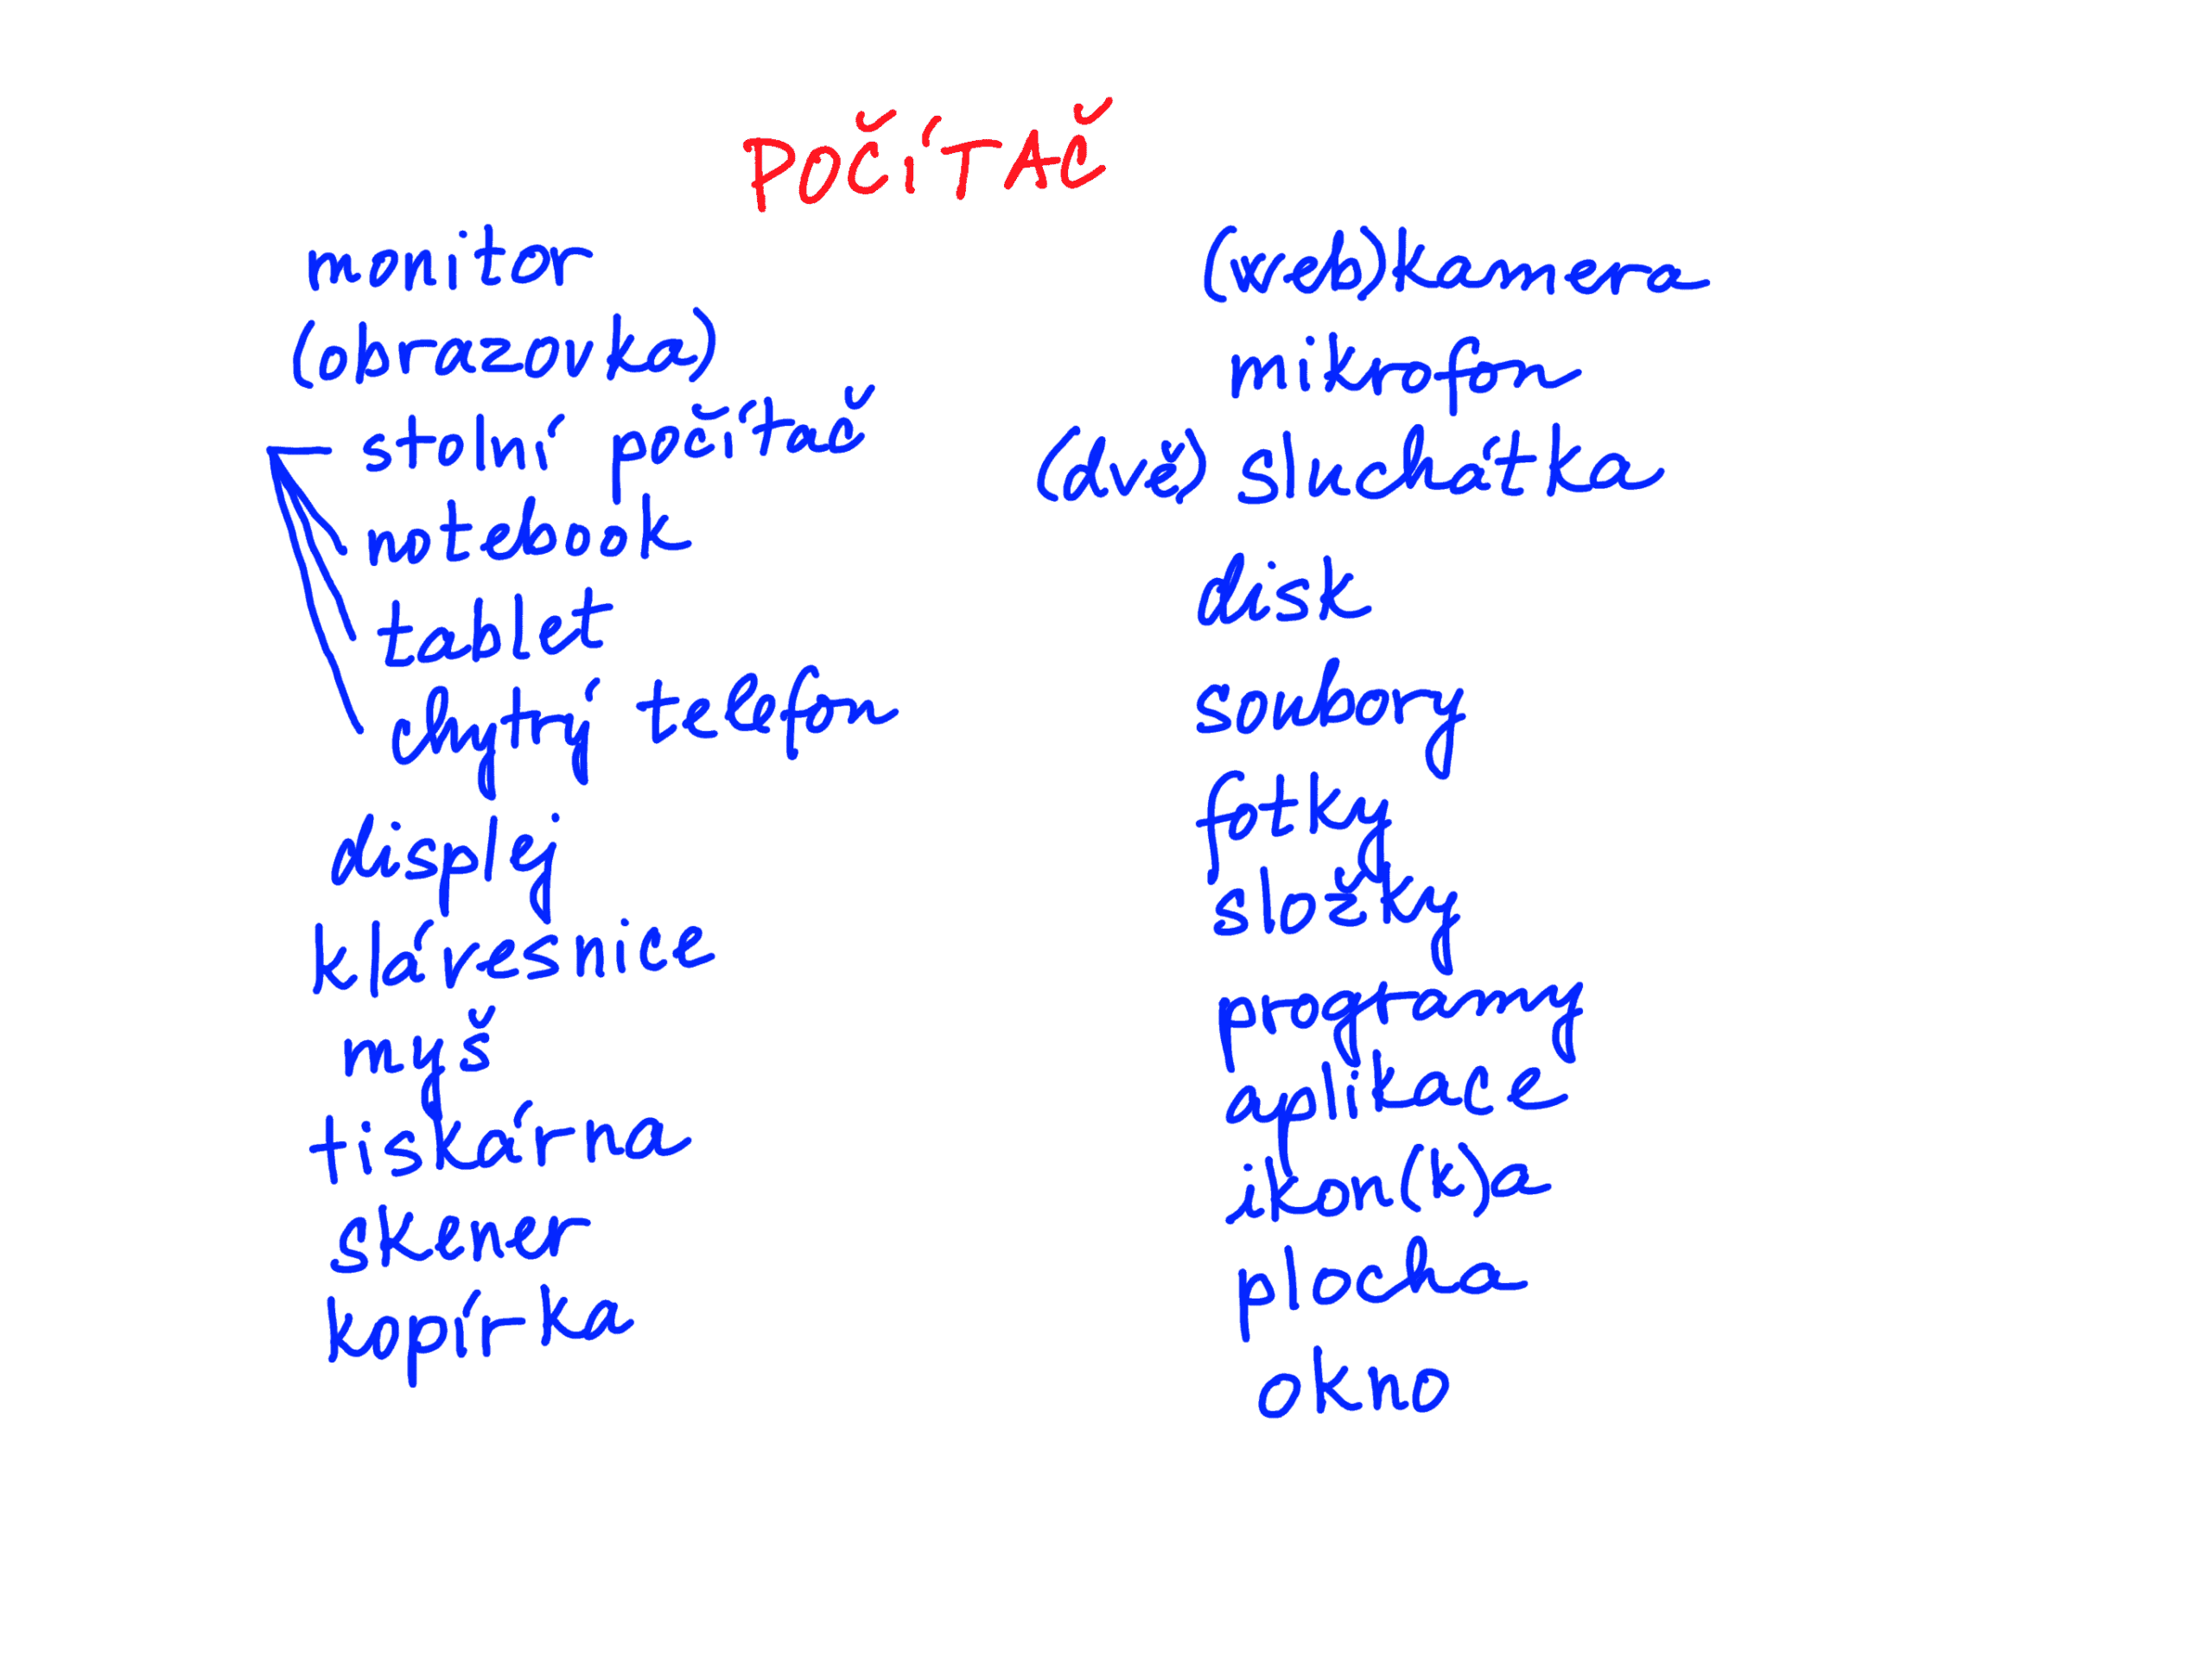 POČÍTAČ
monitor
(obrazovka)
stolní počítač
notebook
tablet
chytrý telefon
displej
klávesnice
myš
tiskárna
skener
kopírka
(web)kamera
mikrofon
(dvě) sluchátka
disk
soubory
fotky
složky
programy
aplikace
ikon(k)a
plocha
okno